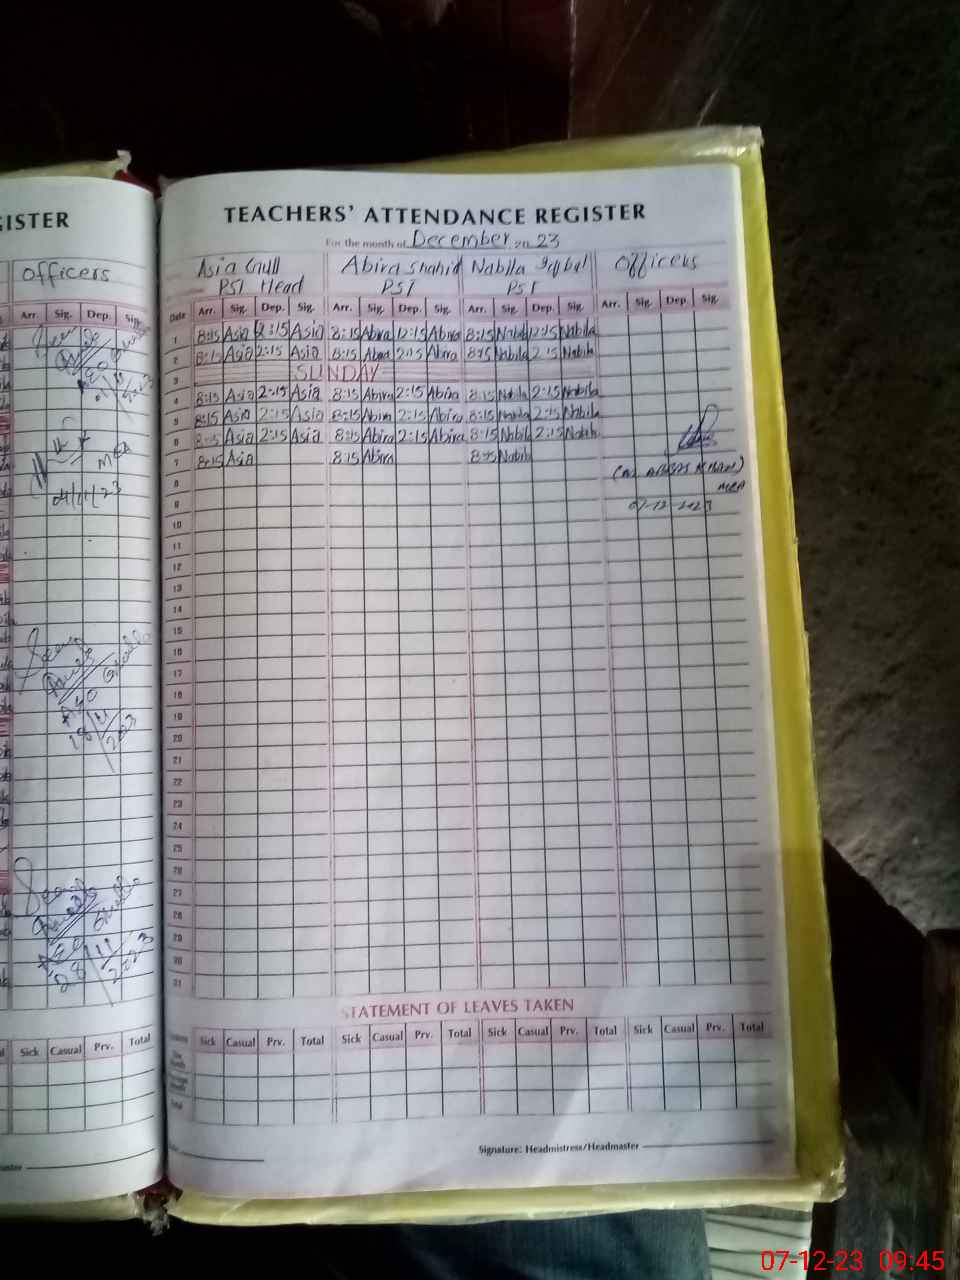 GISTER
officers
Sig. Dep. Sig.
MEA
04/11/23
AEO
18/11/2023
AEO
28/11/2023
Sick Casual Prv. Total
TEACHERS' ATTENDANCE REGISTER
For the month of December 2023
Asia Gull Abira Shahid Nabila Iqbal officers
PST Head PST PST
Date Arr. Sig. Dep. Sig. Arr. Sig. Dep. Sig. Arr. Sig. Dep. Sig. Arr. Sig. Dep. Sig.
1 8:15 Asia 12:15 Asia 8:15 Abira 12:15 Abira 8:15 Nabila 12:15 Nabila
2 8:15 Asia 2:15 Asia 8:15 Abira 2:15 Abira 8:15 Nabila 2:15 Nabila
3 SUNDAY
4 8:15 Asia 2:15 Asia 8:15 Abira 2:15 Abira 8:15 Nabila 2:15 Nabila
5 8:15 Asia 2:15 Asia 8:15 Abira 2:15 Abira 8:15 Nabila 2:15 Nabila
6 8:15 Asia 2:15 Asia 8:15 Abira 2:15 Abira 8:15 Nabila 2:15 Nabila
7 8:15 Asia 8:15 Abira 8:15 Nabila
8
MEA
9 07-12-2023
10
11
12
13
14
15
16
17
18
19
20
21
22
23
24
25
26
27
28
29
30
31
STATEMENT OF LEAVES TAKEN
Sick Casual Prv. Total Sick Casual Prv. Total Sick Casual Prv. Total Sick Casual Prv. Total
Total
Signature: Headmistress/Headmaster
07-12-23 09:45